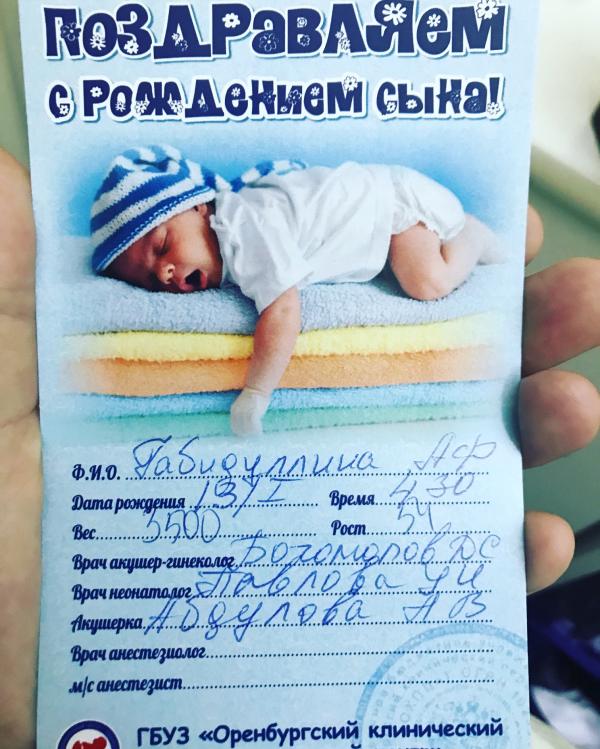 ПОЗДРАВЛЯЕМ
С РОЖДЕНИЕМ СЫНА!
Ф.И.О. Габидуллина АФ
Дата рождения 13/I Время 4 30
Вес 3500 Рост 54
Врач акушер-гинеколог ДС
Врач неонатолог Павлова
Акушерка Абдулова АВ
Врач анестезиолог
м/с анестезист
ГБУЗ «Оренбургский клинический